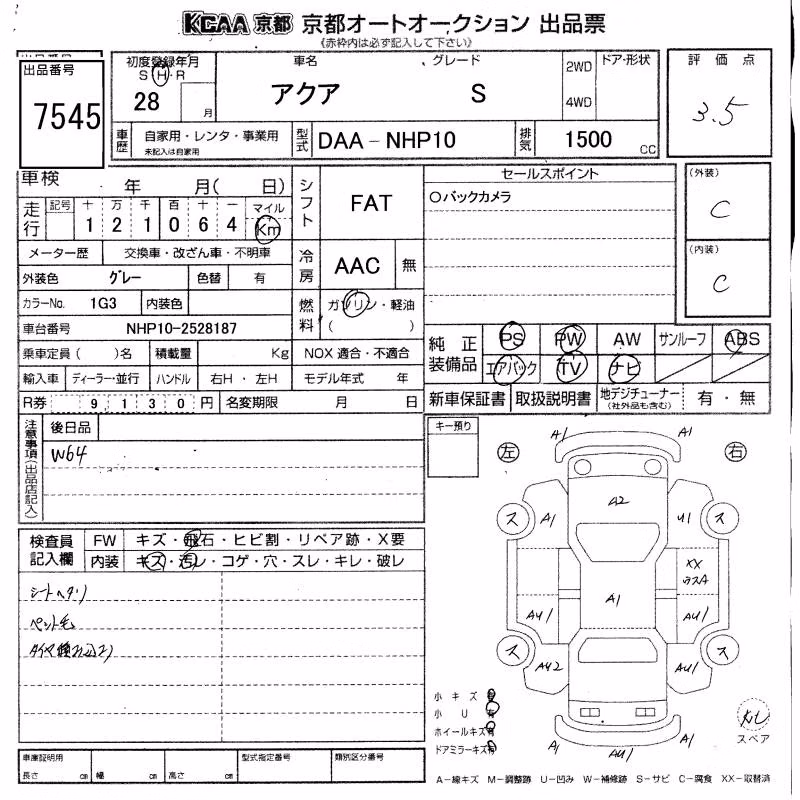 KCAA 京都 京都オートオークション 出品票
《赤枠内は必ず記入して下さい》
出品番号
7545
初度登録年月
S・H・R
28 月
車名
アクア
グレード
S
2WD
4WD
ドア・形状
評価点
3.5
車歴
自家用・レンタ・事業用
未記入は自家用
型式
DAA-NHP10
排気
1500 cc
車検 年 月( 日)
走行
記号 十 万 千 百 十 マイル
1 2 1 0 6 4 Km
シフト
FAT
セールスポイント
○バックカメラ
(外装)
C
(内装)
C
メーター歴 交換車・改ざん車・不明車
外装色 グレー 色替 有
冷房
AAC 無
カラーNo. 1G3 内装色
燃料
ガソリン・軽油
( )
車台番号 NHP10-2528187
乗車定員( )名 積載量 Kg NOX 適合・不適合
輸入車 ディーラー・並行 ハンドル 右H・左H モデル年式 年
R券 9,130円 名変期限 月 日
純正装備品
PS PW AW サンルーフ ABS
エアバック TV ナビ
新車保証書 取扱説明書 地デジチューナー 有・無
(社外品も含む)
注意事項(出品店記入)
後日品
W64
キー預り
左 右
検査員記入欄
FW キズ・飛石・ヒビ割・リペア跡・X要
内装 キズ・汚レ・コゲ・穴・スレ・キレ・破レ
シートヘタリ
ペット毛
A1 A1
A2
ス A1 U1 ス
XX
A1
AU1 AU1
ス AU2 AU1 ス
A1 AU1 A1
小キズ有
小U有
ホイールキズ有
ドアミラーキズ有
スペア
車庫証明用
長さ cm 幅 cm 高さ cm
型式指定番号
類別区分番号
A-線キズ M-調整跡 U-凹み W-補修跡 S-サビ C-腐食 XX-取替済